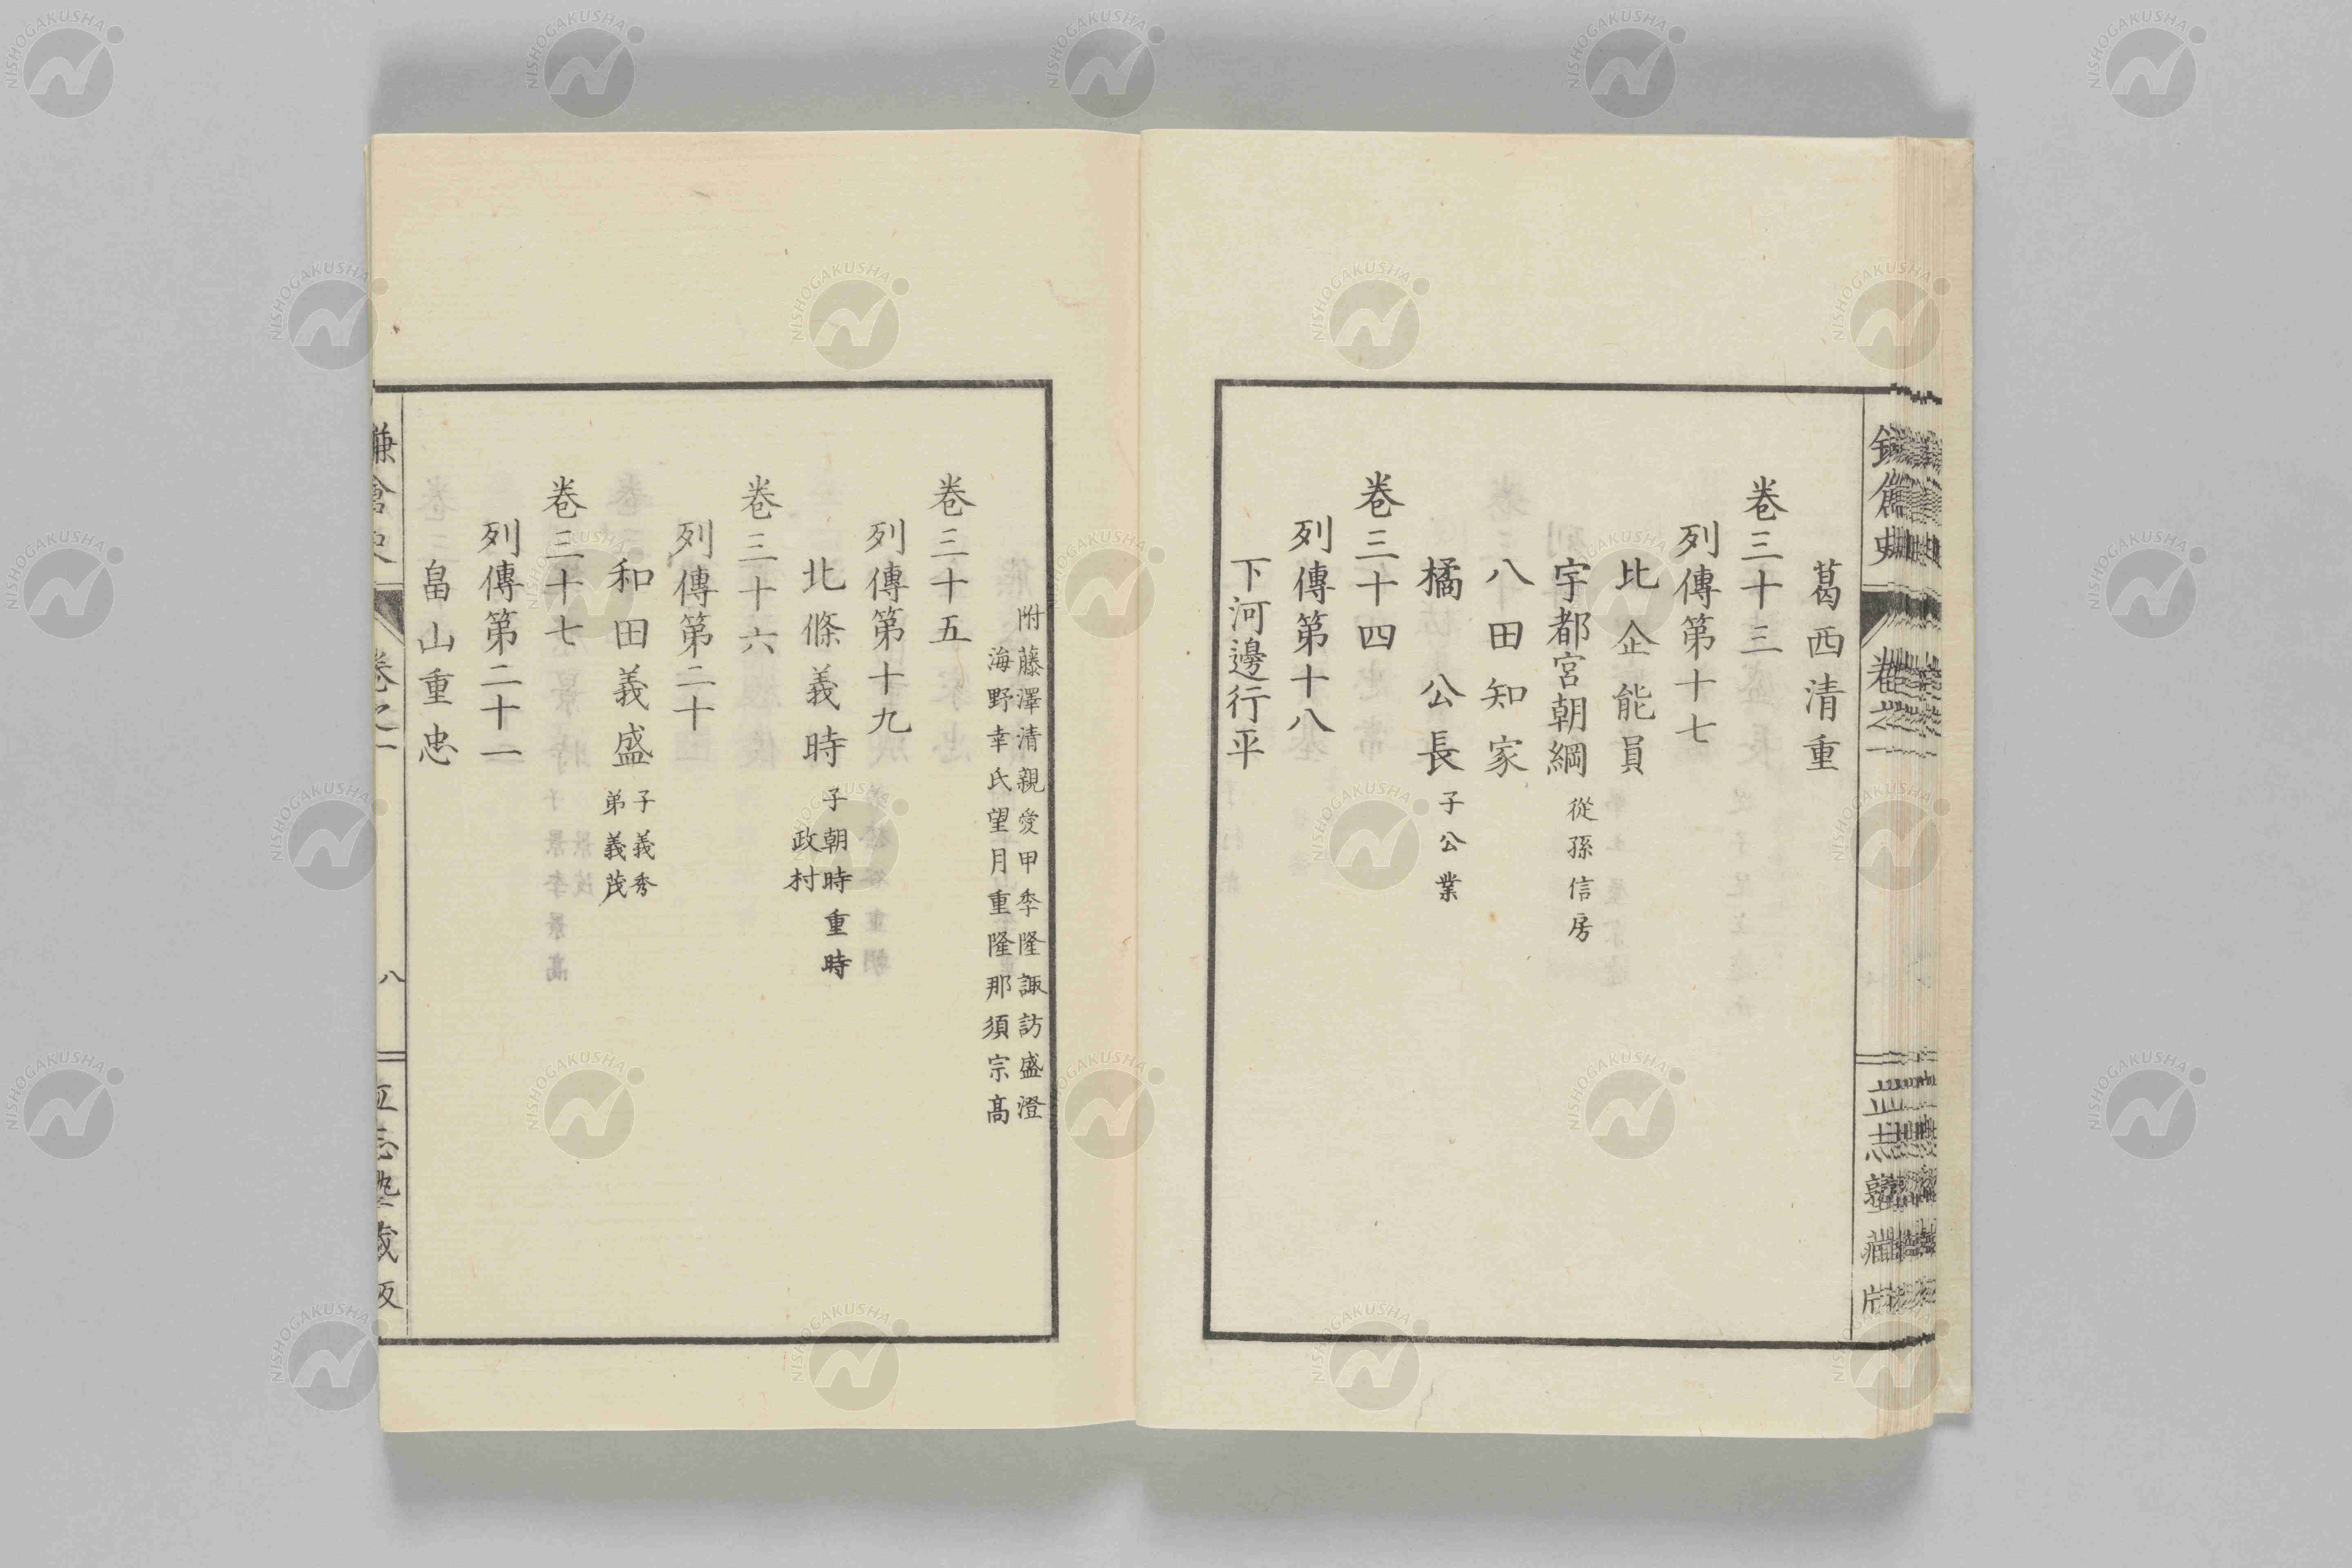 葛西清重
卷三十三
列傳第十七
比企能員
宇都宮朝綱 從孫信房
八田知家
橘公長 子公業
卷三十四
列傳第十八
下河邊行平
附藤澤清親愛甲季隆諏訪盛澄
海野幸氏望月重隆那須宗高
卷三十五
列傳第十九
北條義時 子朝時重時
政村
卷三十六
列傳第二十
和田義盛 子義秀
弟義茂
卷三十七
列傳第二十一
畠山重忠
八
NISHOGAKUSHA